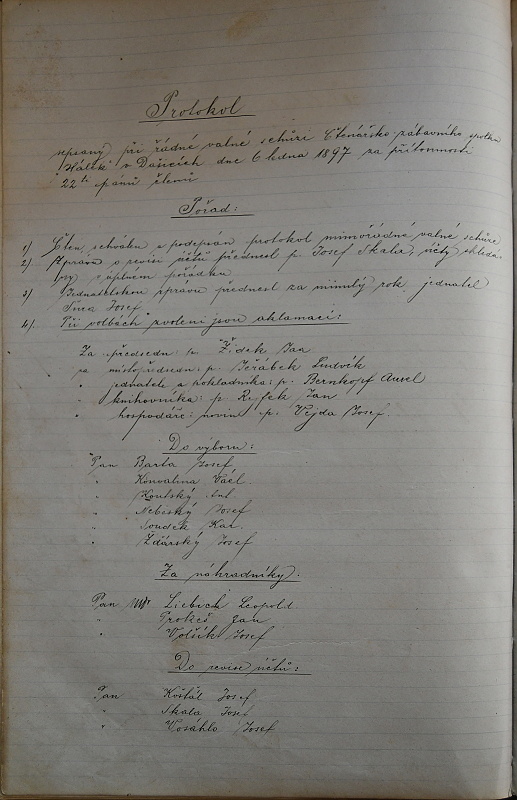 Protokol
sepsaný při řádné valné schůzi Čtenářsko-zábavního spolku
"Hálek" v Dašicích dne 6 ledna 1897 za přítomnosti
22ti pánů členů
Pořad:
1) Čten, schválen a podepsán protokol mimořádné valné schůze
2) Zprávu o revisi účtů přednesl p. Josef Skala, účty shledá-
ny v úplném pořádku
3) Jednatelskou zprávu přednesl za minulý rok jednatel
Josef
4) Při volbách zvoleni jsou aklamací:
Za předsedu: p. Žídek Jan
" místopředsedu: p. Jeřábek Ludvík
" jednatele a pokladníka: p. Bernkopf Aurel
" knihovníka: p. Rejfek Jan
" hospodáře: novin p. Vejda Josef.
Do výboru:
Pan Barta Josef
" Konvalina Václ.
" Koutský Ant.
" Nebeský Josef
" Soudek Kar.
" Žďárský Josef
Za náhradníky:
Pan Liebich Leopold
" Prokeš Jan
" Volšík Josef
Do revise účtů:
Pan Košťál Josef
" Skala Josef
" Vosáhlo Josef